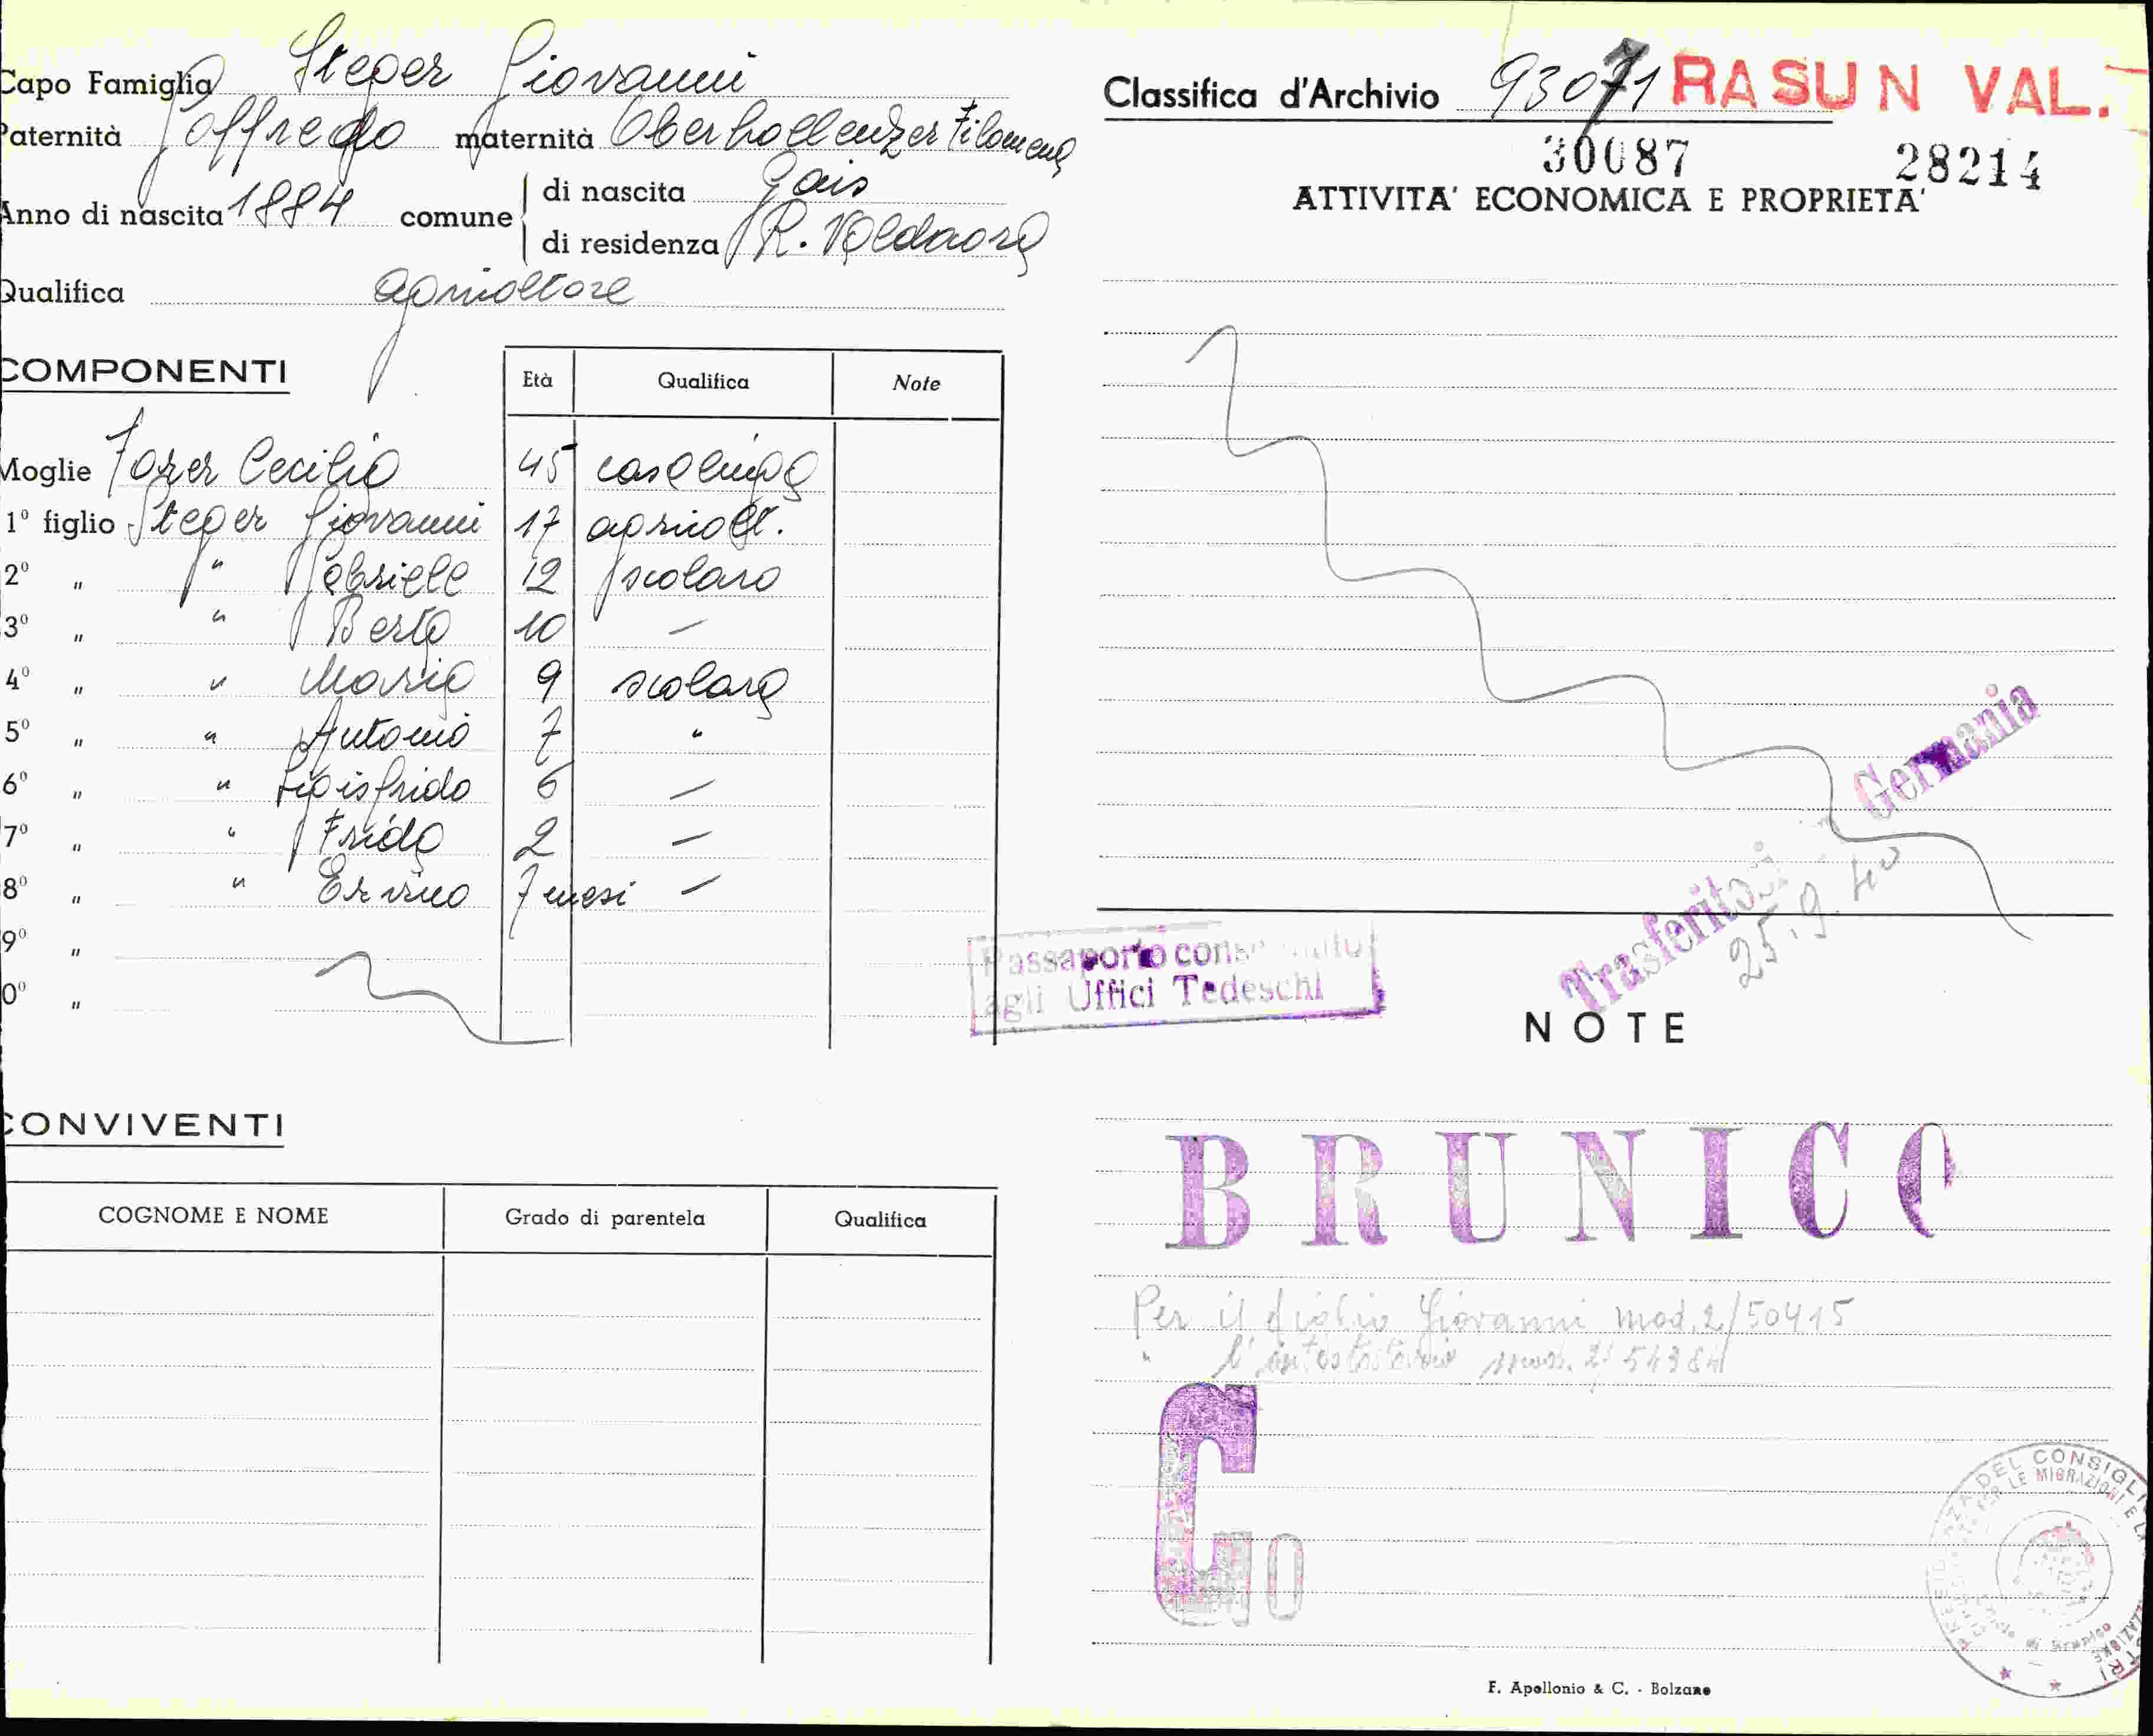 Capo Famiglia Steger Giovanni
Paternità Goffredo maternità Oberhollenzer Filomena
Anno di nascita 1884 comune
di nascita Gais
di residenza R. Valdaora
Qualifica agricoltore
COMPONENTI
Età Qualifica Note
Moglie Forer Cecilia 45 casalinga
1° figlio Steger Giovanni 17 agricolt.
2° " " Gabriele 12 scolaro
3° " " Berta 10 —
4° " " Maria 9 scolara
5° " " Antonio 7 "
6° " " Sigisfrido 6 —
7° " " Frida 2 —
8° " " Ervino 7 mesi —
9° "
0° "
CONVIVENTI
COGNOME E NOME Grado di parentela Qualifica
Classifica d'Archivio 93071 RASUN VAL.
30087 28214
ATTIVITA' ECONOMICA E PROPRIETA'
Trasferitosi in Germania
25.9.40
Passaporto
agli Uffici Tedeschi
NOTE
BRUNICO
Per il figlio Giovanni mod. 2/50415
" l'intestatario mod. 2/54984
G
10
DEL CONSIGLI
PER LE MIGRAZIONI E LA
di Brunico
F. Apollonio & C. - Bolzano